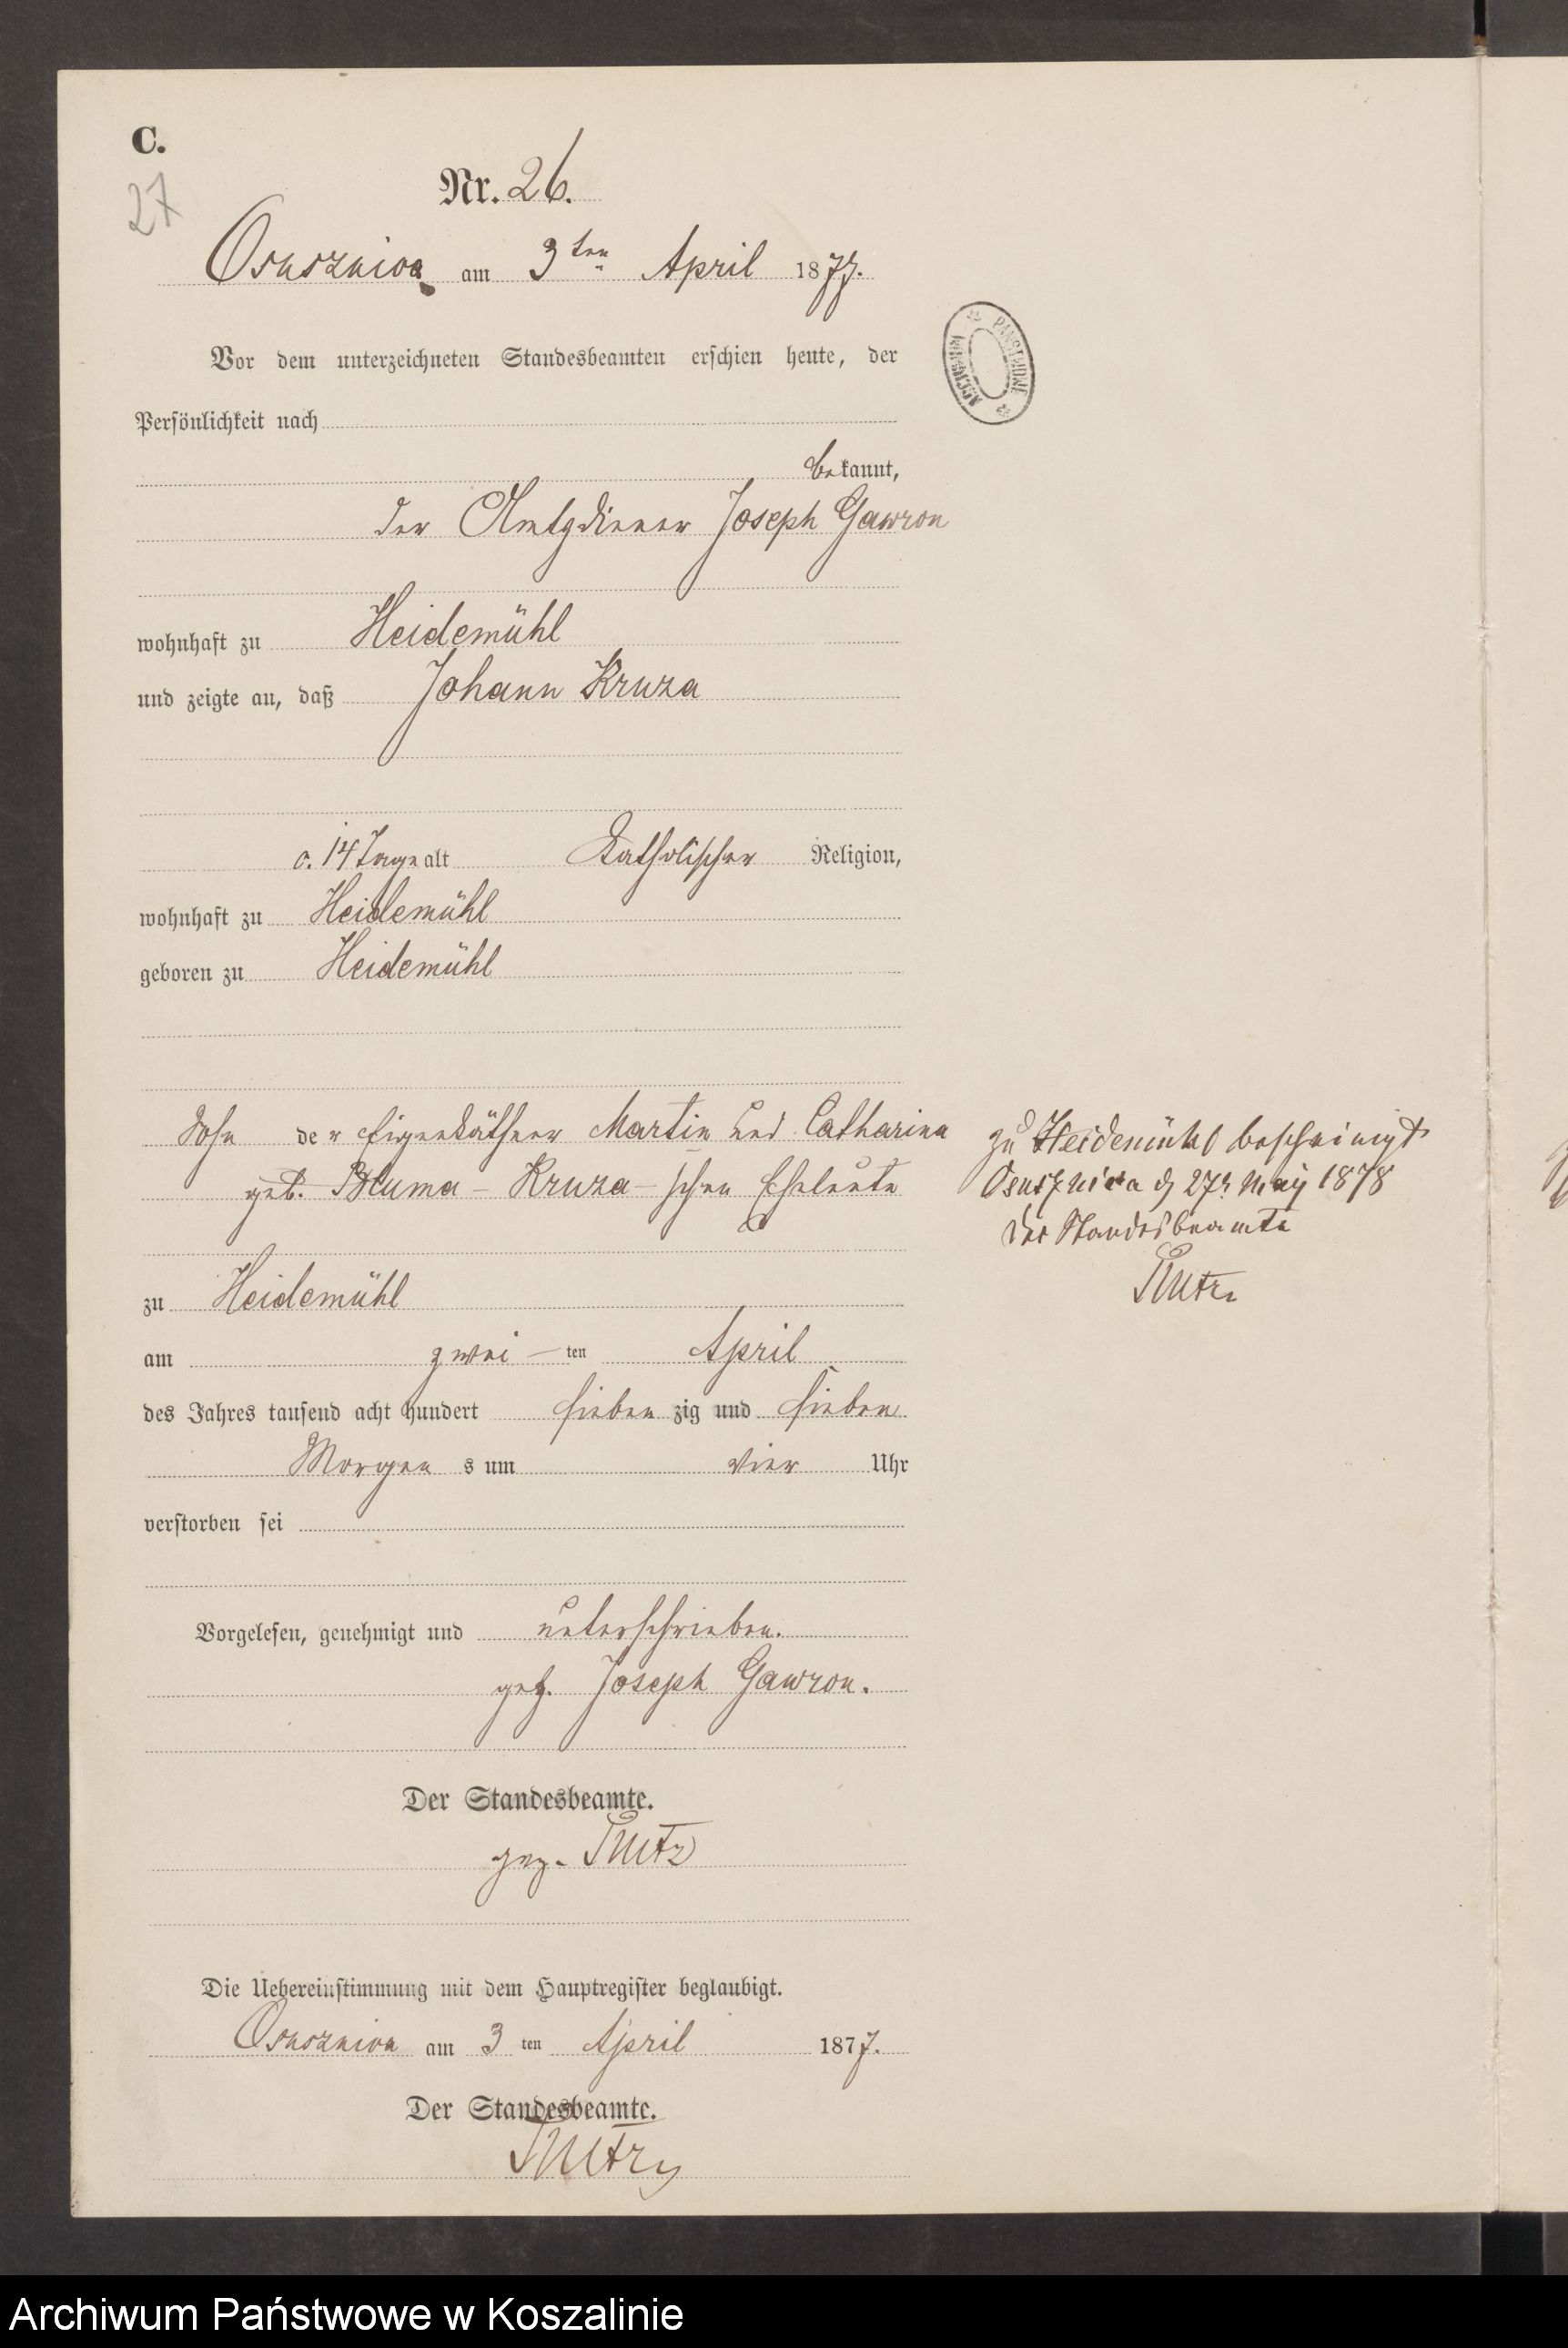 C.
27
Nr. 26.
Osusznica am 3ten April 1877.
ARCHIWUM PAŃSTWOWE
Vor dem unterzeichneten Standesbeamten erschien heute, der
Persönlichkeit nach
bekannt,
der Amtsdiener Joseph Gawron
wohnhaft zu Heidemühl
und zeigte an, daß Johann Kruza
c. 14 Tage alt Katholischer Religion,
wohnhaft zu Heidemühl
geboren zu Heidemühl
Sohn der Eigenkäthner Martin und Catharina
geb. Kruza-schen Eheleute
zu Heidemühl
am zwei-ten April
des Jahres tausend acht hundert siebenzig und sieben
Morgens um vier Uhr
verstorben sei
zu Heidemühl bescheinigt
Osusznica d 27 May 1878
Der Standesbeamte
Vorgelesen, genehmigt und unterschrieben.
gez. Joseph Gawron.
Der Standesbeamte.
gez.
Die Uebereinstimmung mit dem Hauptregister beglaubigt.
Osusznica am 3 ten April 1877.
Der Standesbeamte.
Archiwum Państwowe w Koszalinie